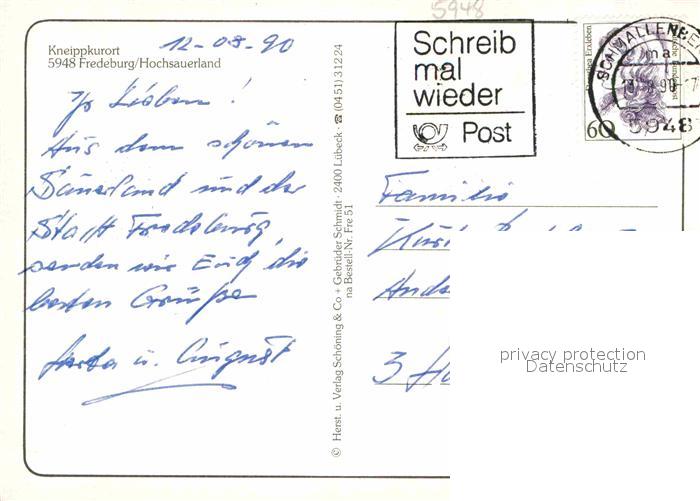 5948
Kneippkurort
5948 Fredeburg/Hochsauerland
12-09-90
Ihr Lieben!
Aus dem schönen
Sauerland und der
Stadt Fredeburg,
senden wir Euch die
besten Grüße
u. August
© Herst. u. Verlag Schöning & Co + Gebrüder Schmidt · 2400 Lübeck · ☎ (0451) 31224
na Bestell-Nr. Fre 51
Schreib
mal
wieder
Post
SCHMALLENBE
ma
5948
60
Dorothea Erxleben
Familie
3
privacy protection
Datenschutz